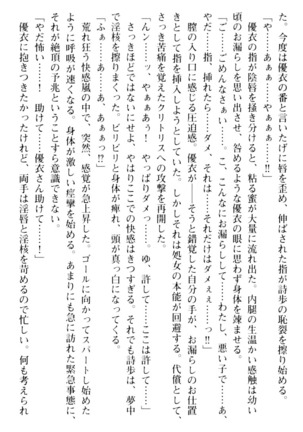 た。今度は優衣の番と言いたげに唇を歪め、伸ばされた指が詩歩の恥裂を抉り
「や……やぁぁぁーっ！」
優衣の指が陰唇を掻き分けると、粘る蜜が大量に流れ出た。内腿の生温かい感触は幼い
頃のお漏らしを思い出させ、咎めるような優衣の眼に思わず身体を竦ませる。
「ご……ごめんなさい……。こ、こんなにお漏らしして……わたし、悪い子で……あ、
やだ……指、挿れたらダメ、それは……それだけはダメぇぇ……っ!!」
膣の入り口に感じる圧迫感。優衣が、そう錯覚した自分の手が、お漏らしのお仕置
きとして指を挿入しようとしていた。しかしそれは処女の本能が回避する。代償として、
さっき苦痛を覚えたクリトリスへの攻撃を再開した。
「んんっ……やぁぁっ！　やっぱりダメっ。ゆ、許して……ここは許して……」
さっきほどではないにせよ、やはりここでの快感はきつすぎる。それでも詩歩は、夢中
で淫核を擦りまくる。ビリビリと身体が痺れ、頭が真っ白になってくる。
「ふぁ……ふ、あ、ぁ、あぁぁっ!!」
荒れ狂う快感嵐の中で、突然、感覚が急上昇した。ゴールに向かってスパートし始めた
ように呼吸が速くなる。身体が激しい痙攣を始める。あまりにも急に訪れた緊急事態に、
それが絶頂の予兆ということすら意識できない。
「やだ怖い……！　助けて……優衣さん助けて……！」
優衣に抱きつきたかったけれど、両手は淫唇と淫核を苛めるので忙しい。何も考えられ